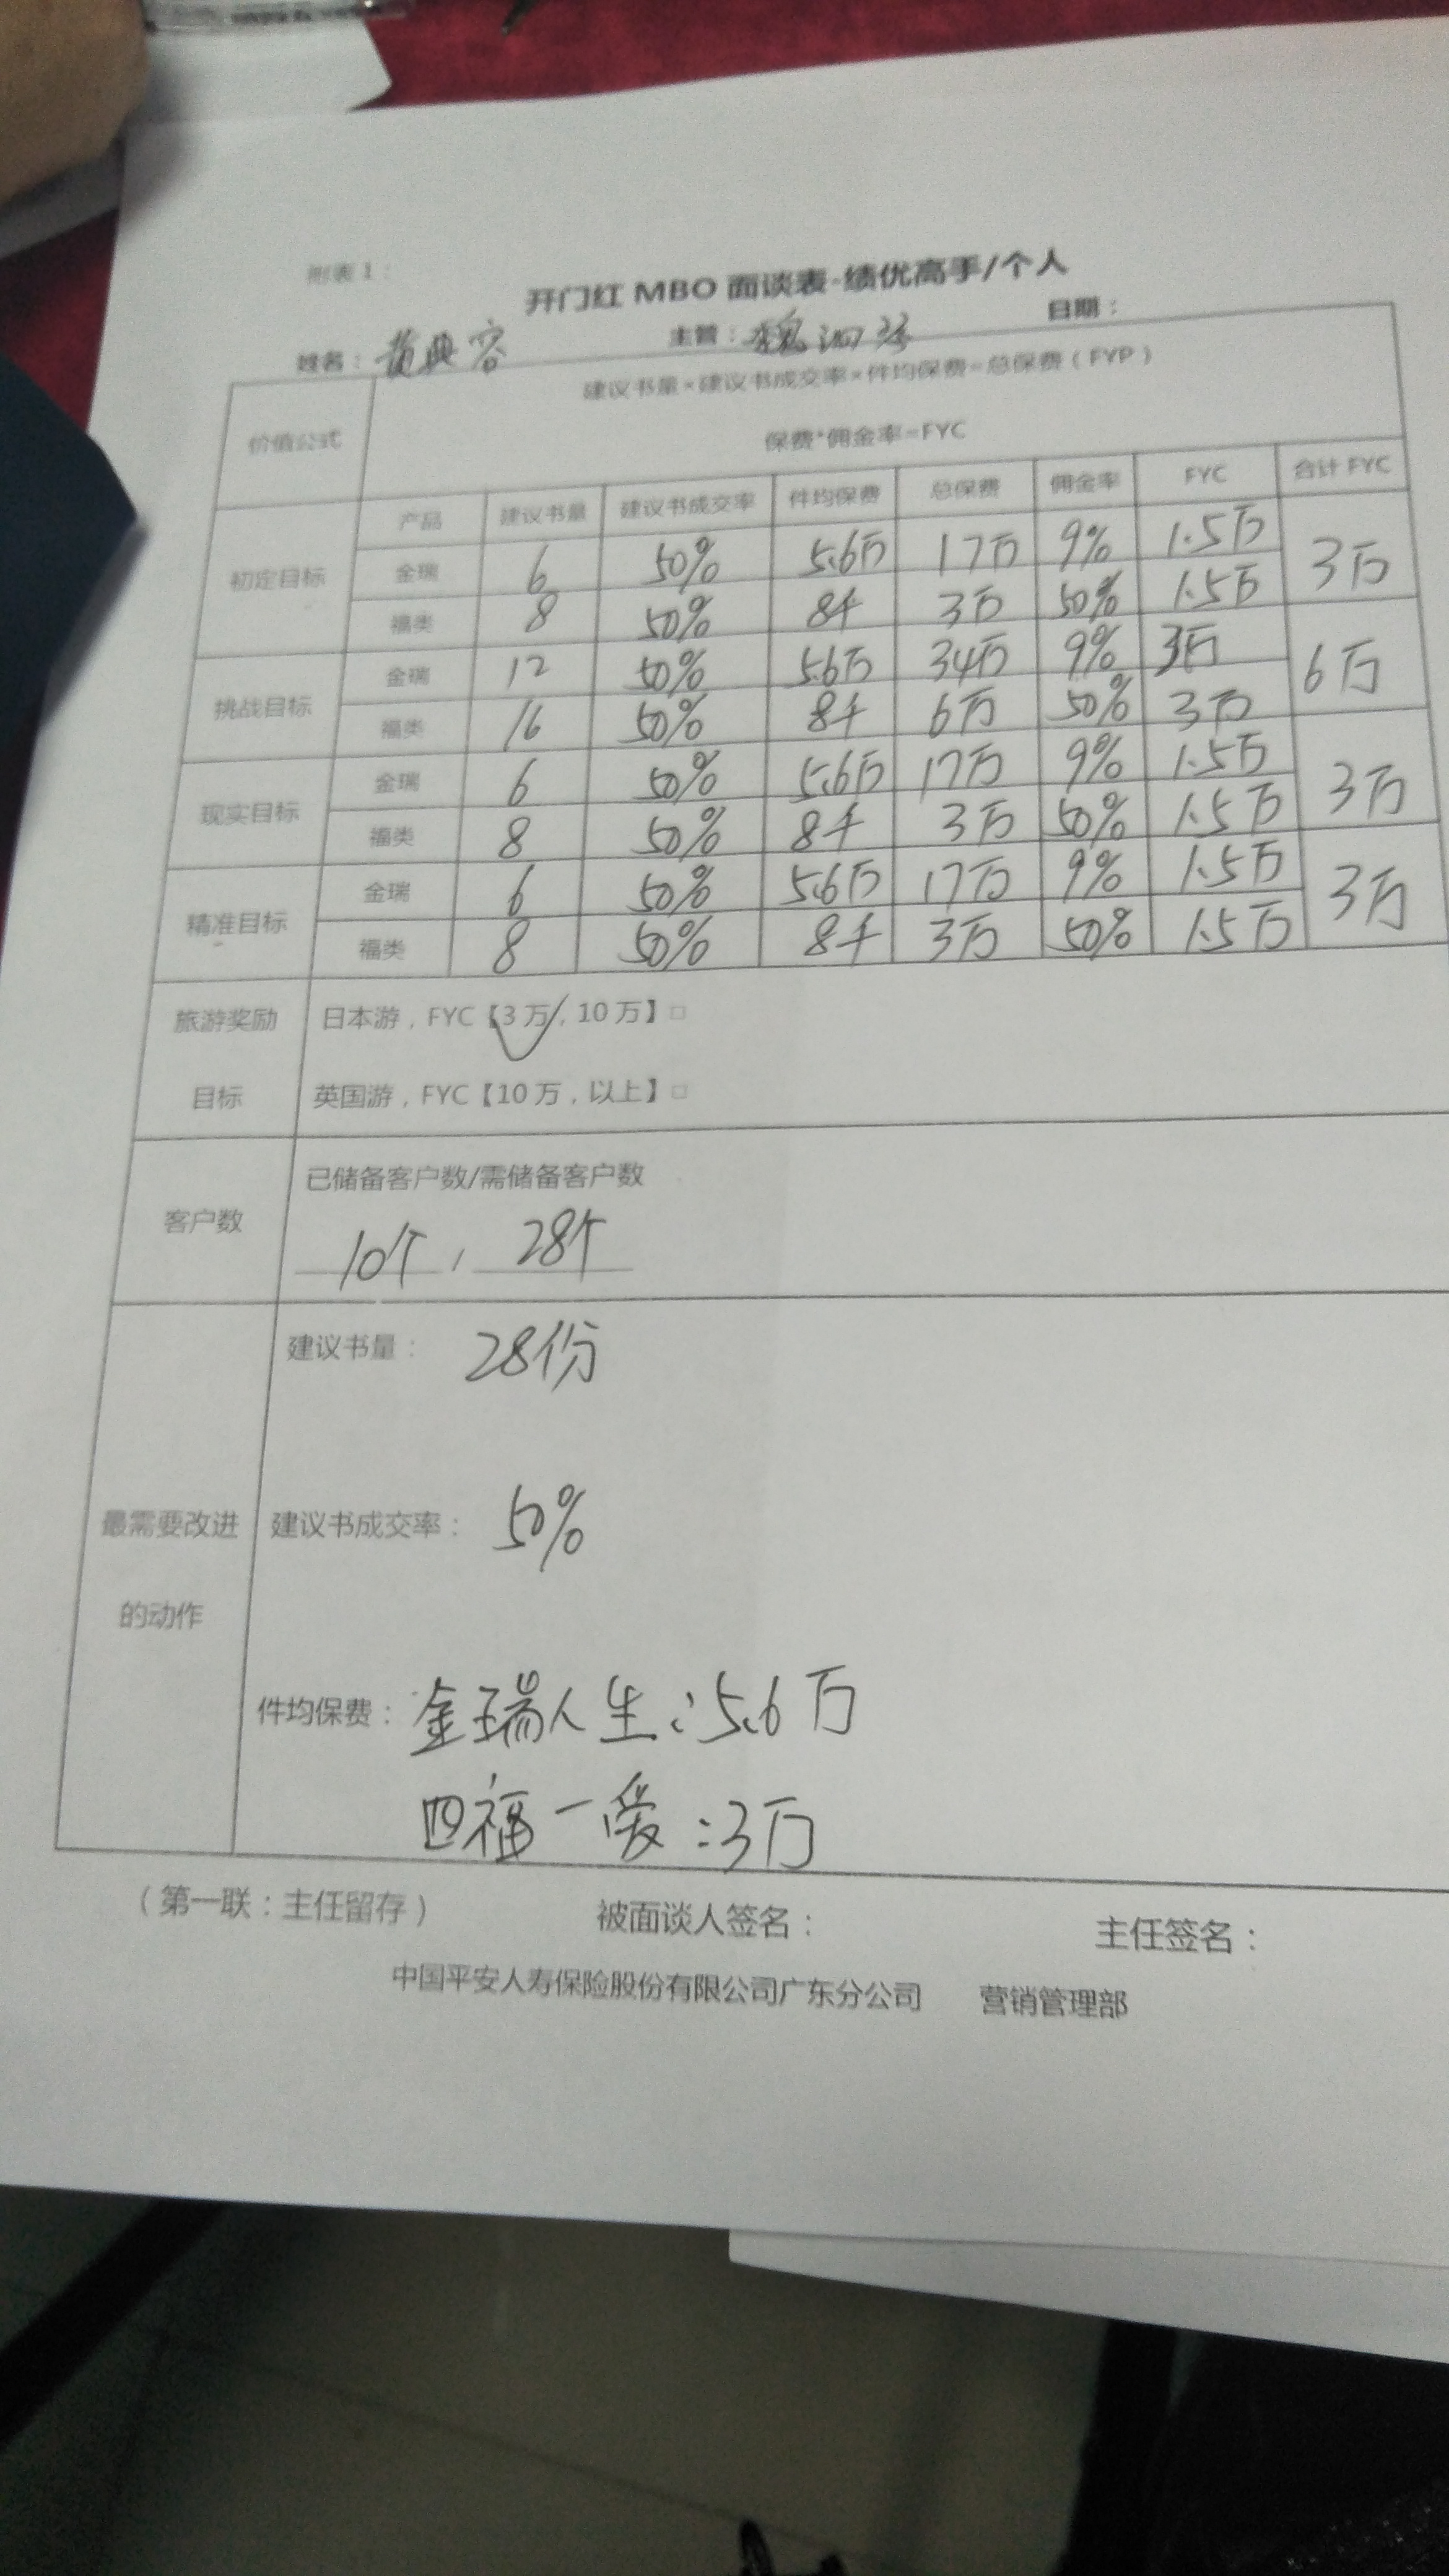 附表1：
开门红 MBO 面谈表-绩优高手/个人
姓名： 黄典容 主管： 魏泗 日期：
价值公式 建议书量*建议书成交率*件均保费=总保费（FYP）
保费*佣金率=FYC
产品 建议书量 建议书成交率 件均保费 总保费 佣金率 FYC 合计 FYC
初定目标 金瑞 6 50% 5.6万 17万 9% 1.5万 3万
福类 8 50% 8千 3万 50% 1.5万
挑战目标 金瑞 12 50% 5.6万 34万 9% 3万 6万
福类 16 50% 8千 6万 50% 3万
现实目标 金瑞 6 50% 5.6万 17万 9% 1.5万 3万
福类 8 50% 8千 3万 50% 1.5万
精准目标 金瑞 6 50% 5.6万 17万 9% 1.5万 3万
福类 8 50% 8千 3万 50% 1.5万
旅游奖励 日本游，FYC【3万，10万】□
目标 英国游，FYC【10万，以上】□
客户数 已储备客户数/需储备客户数
10个 / 28个
建议书量： 28份
最需要改进 建议书成交率： 50%
的动作
件均保费： 金瑞人生：5.6万
四福一爱：3万
（第一联：主任留存） 被面谈人签名： 主任签名：
中国平安人寿保险股份有限公司广东分公司 营销管理部